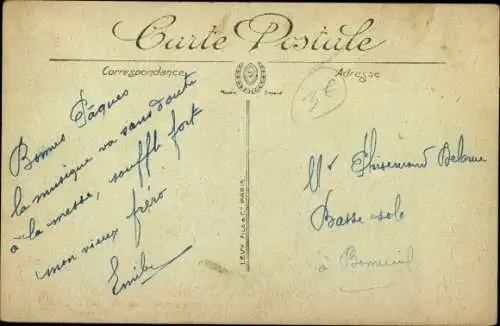 Carte Postale
Correspondance
Adresse
3€
Bonnes Pâques
la musique va sans doute
à la messe, souffle fort
mon vieux fréro
Emile
LEVY FILS & Cie PARIS
Mr
Basse solo
à Bonneuil